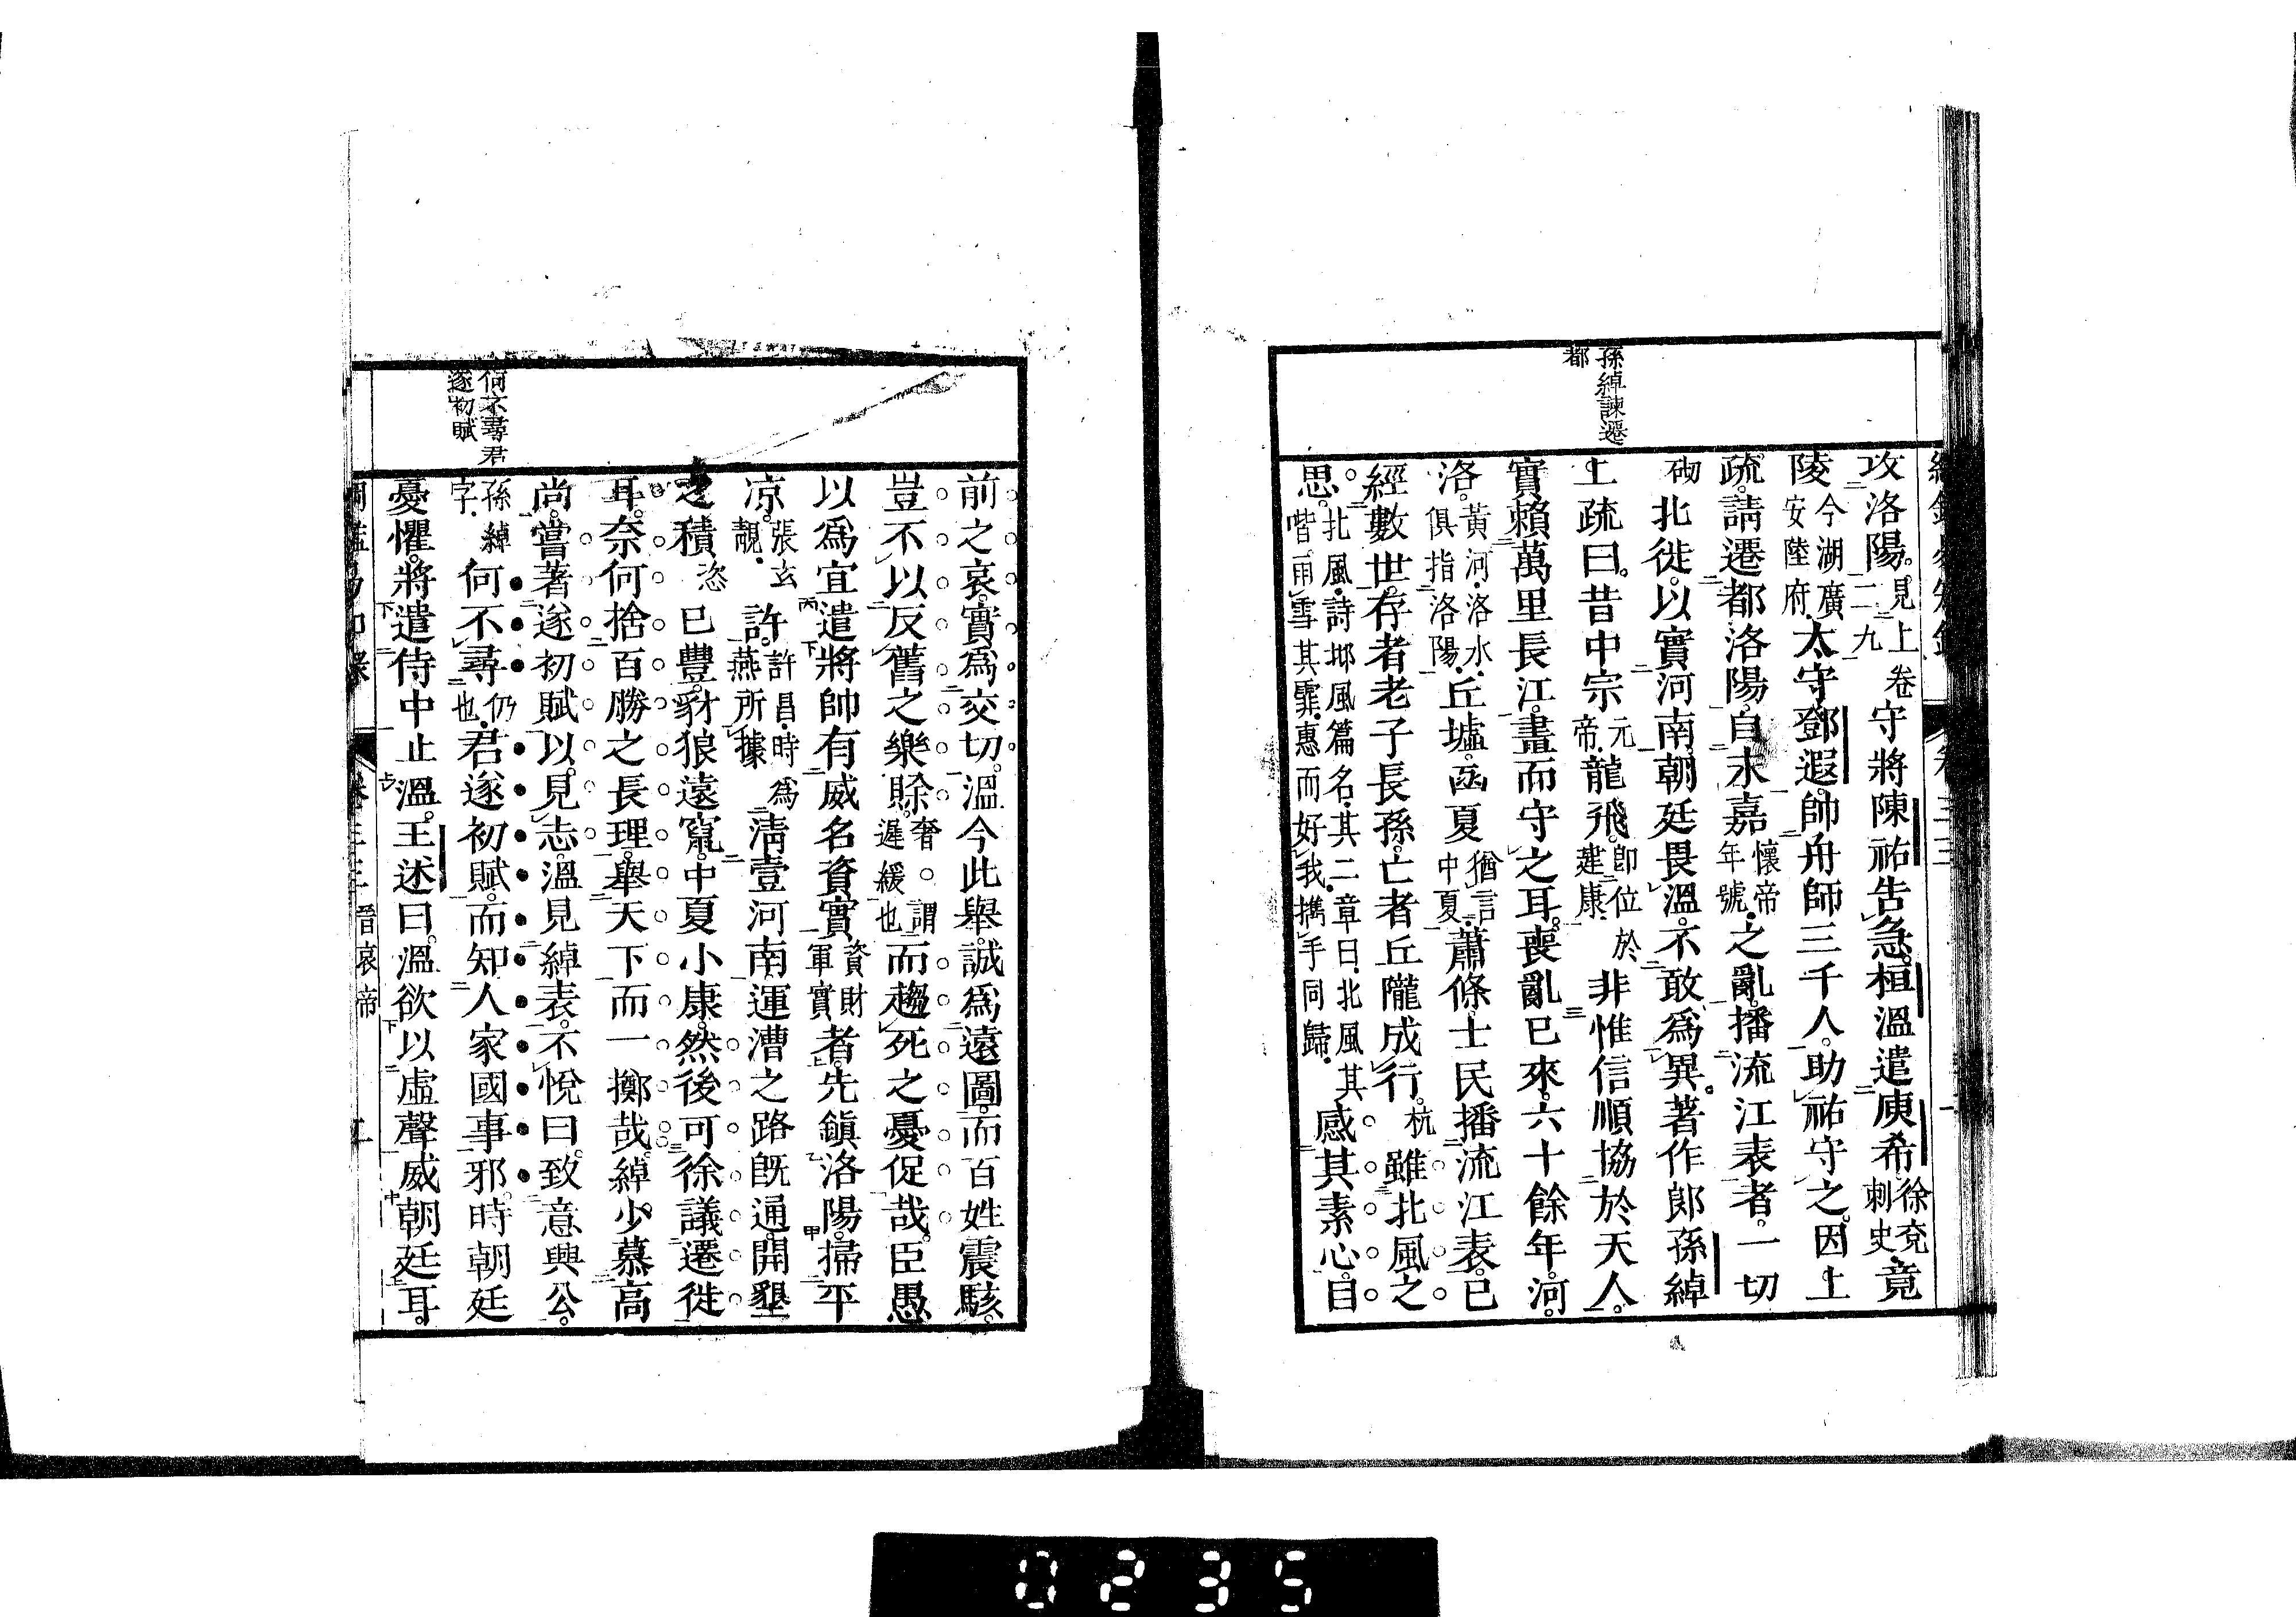 孫綽諫遷
都
攻洛陽。見上卷二九守將陳祐告急。桓溫遣庾希徐兗刺史竟
陵今湖廣安陸府太守鄧遐。帥舟師三千人。助祐守之。因上
疏。請遷都洛陽。自永嘉懷帝年號之亂。播流江表者。一切
北徙。以實河南。朝廷畏溫。不敢爲異。著作郎孫綽
上疏曰。昔中宗元帝龍飛。卽位於建康非惟信順協於天人。
實賴萬里長江。畫而守之耳。喪亂已來。六十餘年。河
洛。黃河洛水俱指洛陽丘墟。函夏猶言中夏蕭條。士民播流江表。已
經數世。存者老子長孫。亡者丘隴成行。杭雖北風之
思。北風詩邶風篇名其二章曰北風其喈雨雪其霏惠而好我攜手同歸感其素心。目
前之哀。實爲交切。溫今此舉。誠爲遠圖。而百姓震駭。
豈不以反舊之樂賖。奢。謂遲緩也而趨死之憂促哉。臣愚
以爲宜遣將帥有威名資實資財軍實者。先鎭洛陽。掃平
涼。張玄靚許。許昌時爲燕所據淸壹河南。運漕之路旣通。開墾
之積恣已豐。豺狼遠竄。中夏小康。然後可徐議遷徙
耳。奈何捨百勝之長理。舉天下而一擲哉。綽少慕高
尚。嘗著遂初賦。以見志。溫見綽表。不悅曰。致意興公。
孫綽字何不尋仍也君遂初賦。而知人家國事邪。時朝廷
憂懼。將遣侍中止溫。王述曰。溫欲以虛聲威朝廷耳。
何不尋君
遂初賦
卷三三 晉哀帝
0235